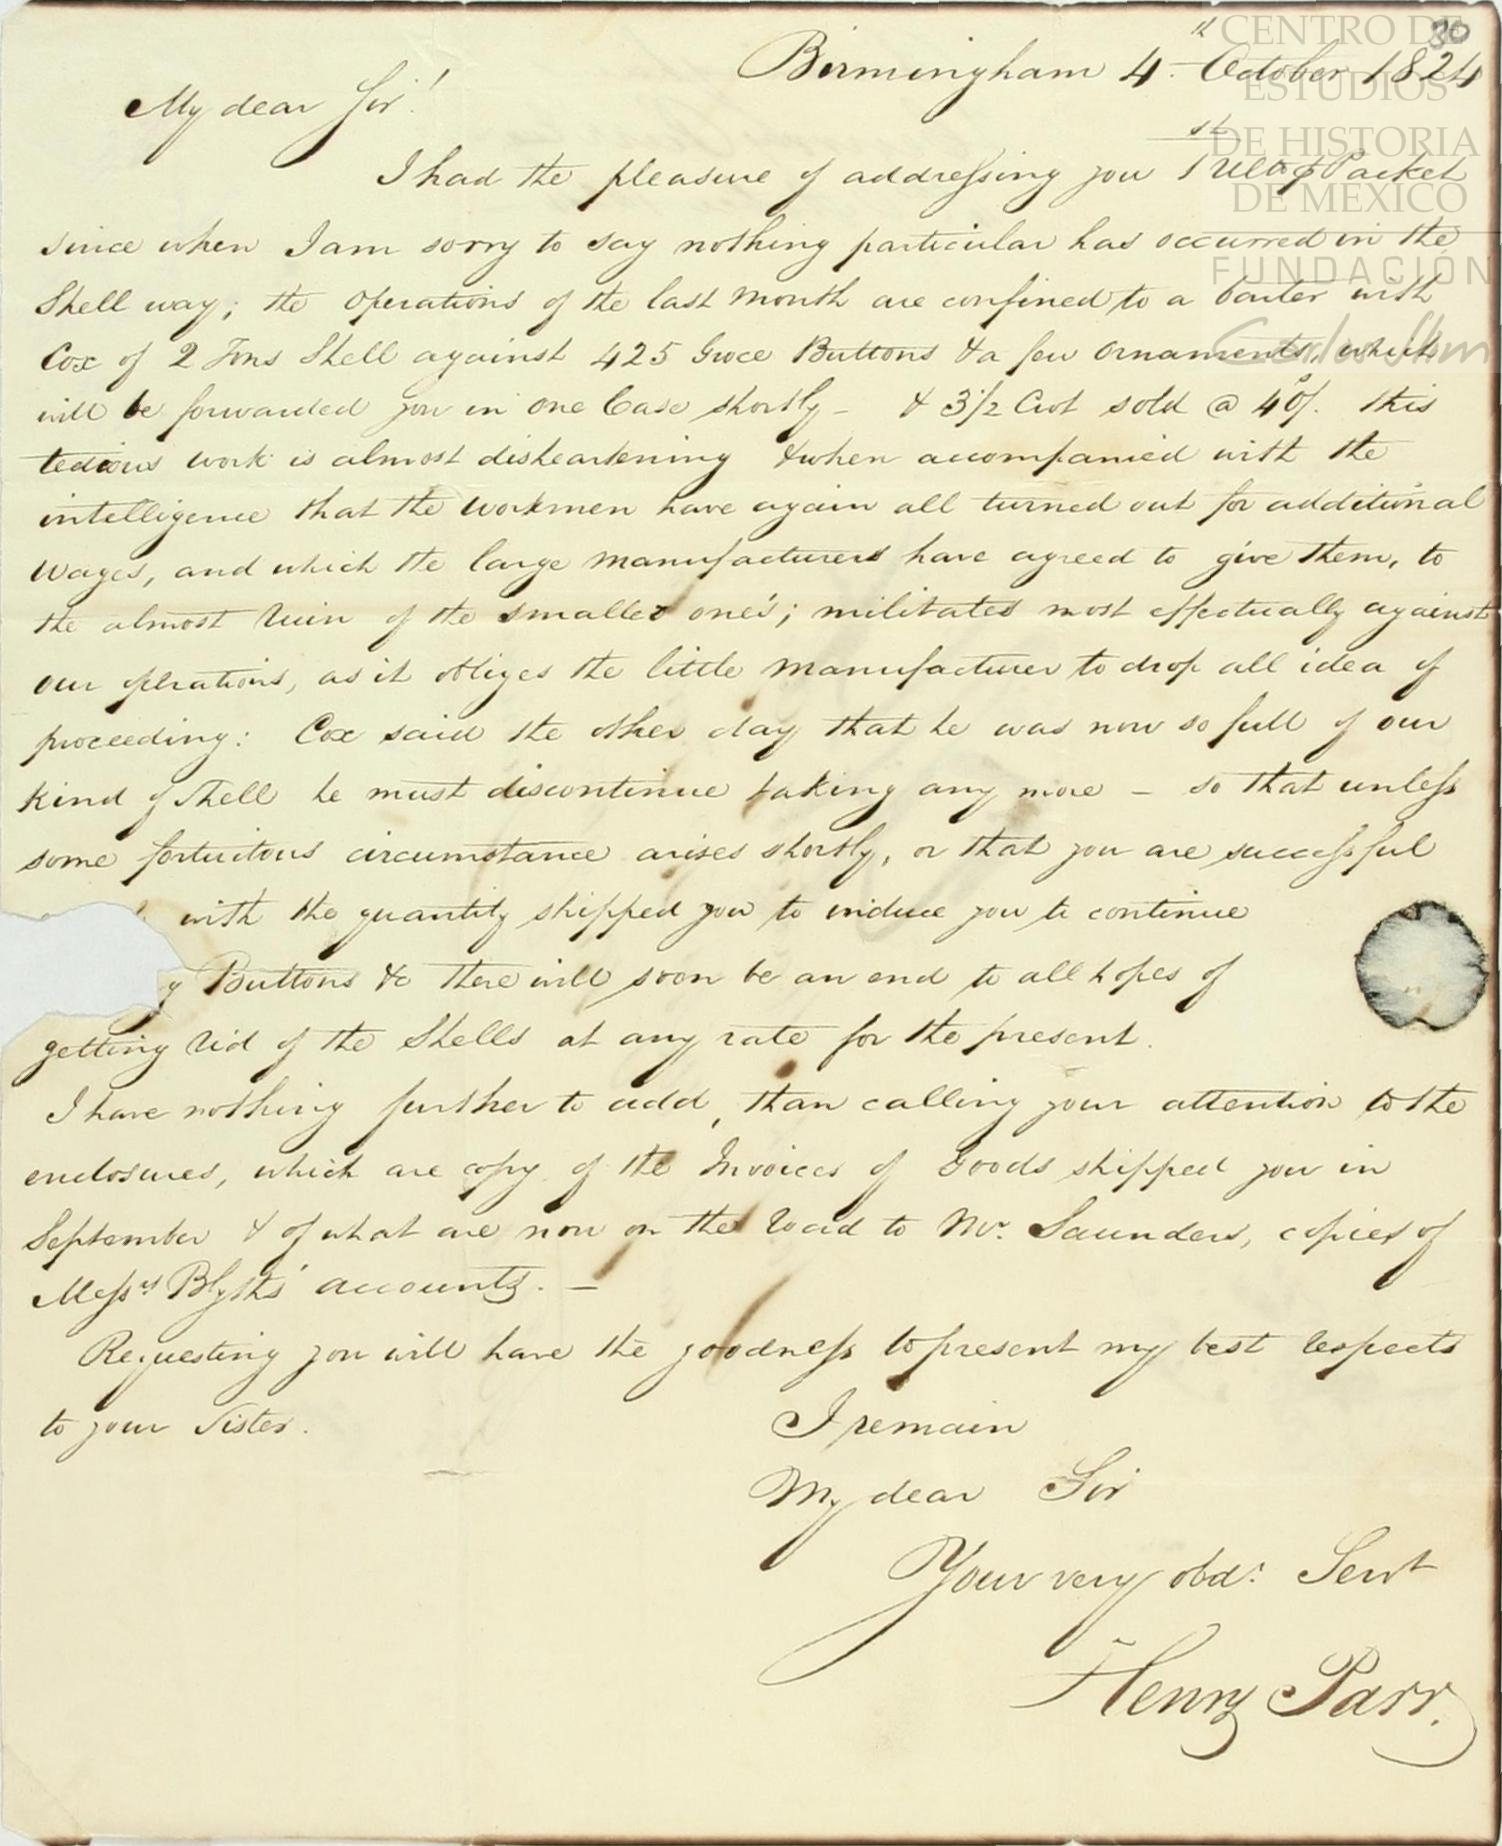 30
CENTRO DE
ESTUDIOS
DE HISTORIA
DE MEXICO
FUNDACIÓN
Carlos Slim
Birmingham 4th October 1824
My dear Sir!
I had the pleasure of addressing you 1st Ulto p Packet
since when I am sorry to say nothing particular has occurred in the
Shell way; the operations of the last Month are confined to a barter with
Cox of 2 Tons Shell against 425 Groce Buttons & a few ornaments, which
will be forwarded you in one Case shortly – & 3 1/2 Cwt sold @ 40/. this
tedious work is almost disheartening & when accompanied with the
intelligence that the workmen have again all turned out for additional
Wages, and which the large Manufacturers have agreed to give them, to
the almost ruin of the smaller one's; militates most effectually against
our operations, as it obliges the little Manufacturer to drop all idea of
proceeding: Cox said the other day that he was now so full of our
kind of Shell he must discontinue taking any more – so that unless
some fortuitous circumstance arises shortly, or that you are successful
with the quantity shipped you to induce you to continue
Buttons &c there will soon be an end to all hopes of
getting rid of the Shells at any rate for the present.
I have nothing further to add, than calling your attention to the
enclosures, which are copy of the Invoices of Goods shipped you in
September & of what are now on the road to Mr. Saunders, copies of
Messrs Blyths' accounts. –
Requesting you will have the goodness to present my best respects
to your Sister.
I remain
My dear Sir
Your very obdt Servt
Henry Parr.